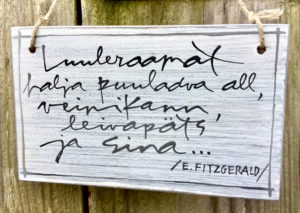 Luuleraamat
halja puuladva all,
veinikann,
leivapäts
ja sina...
/E. FITZGERALD/